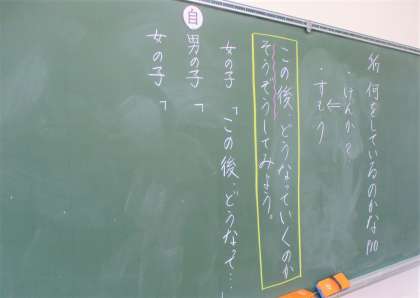 何をしているのかなP10
・けんか?
⇐
・すもう
この後、どうなっていくのか
そうぞうしてみよう。
女の子「この後、どうなって…」
自
男の子「
女の子「